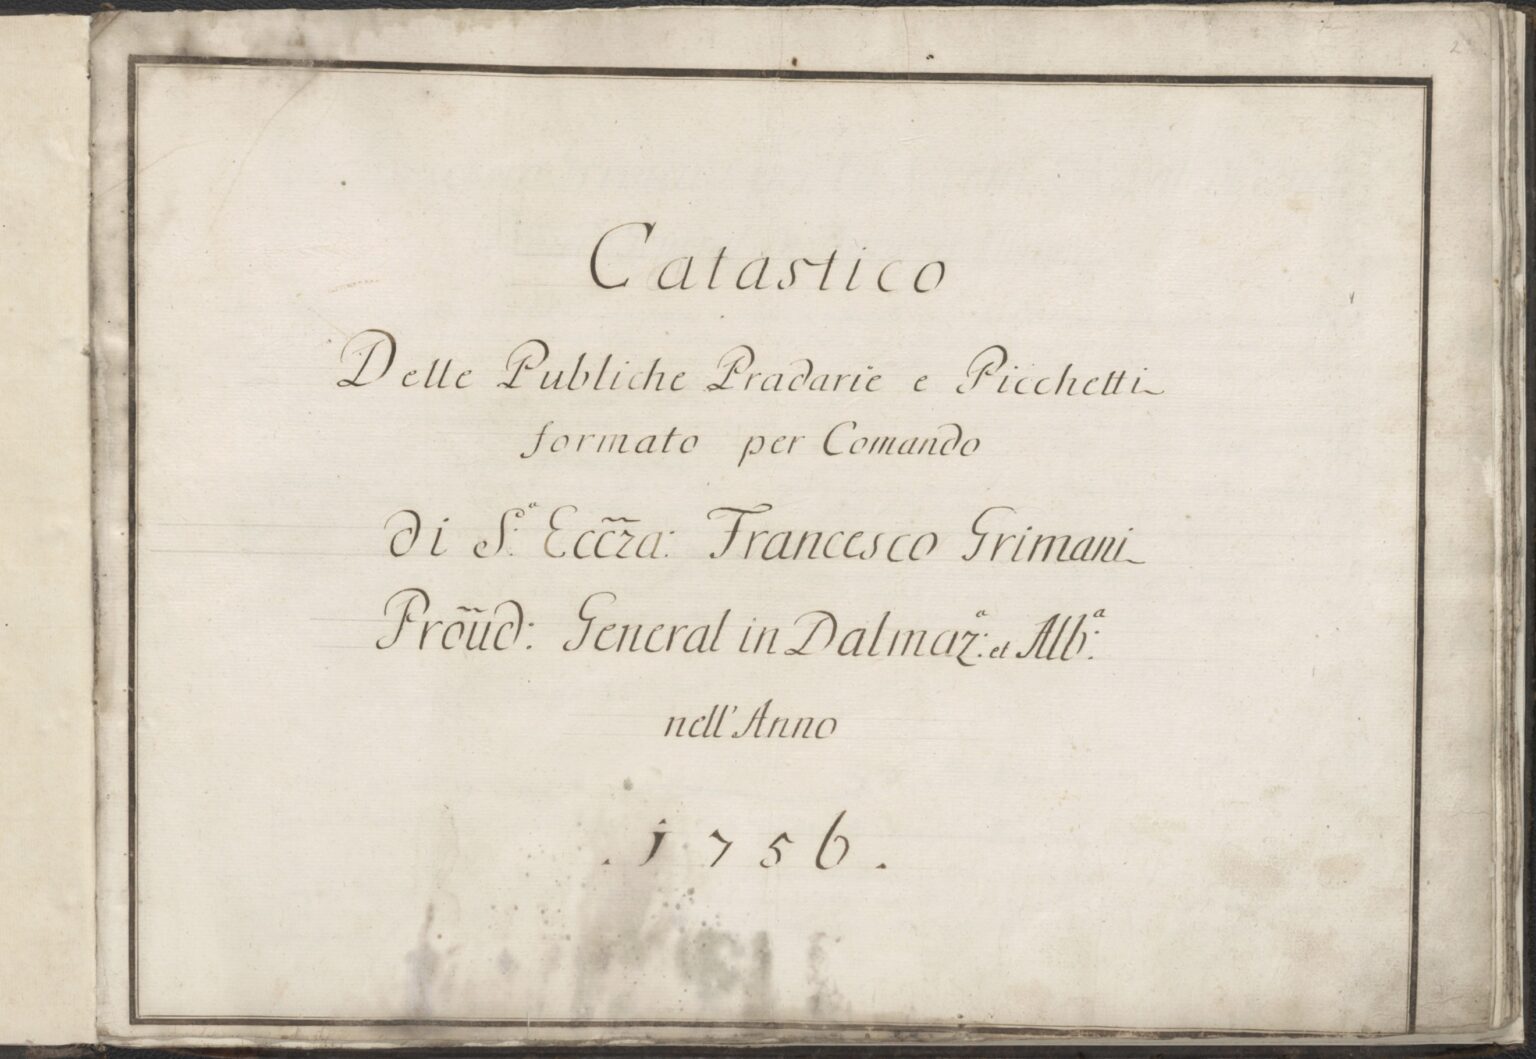 Catastico
Delle Publiche Pradarie e Picchetti
formato per Comando
di S.ª Ecc̃z̃a: Francesco Grimani
Prõṽd: General in Dalmaz.ª: et Alb.ª:
nell'Anno
. 1756 .
2